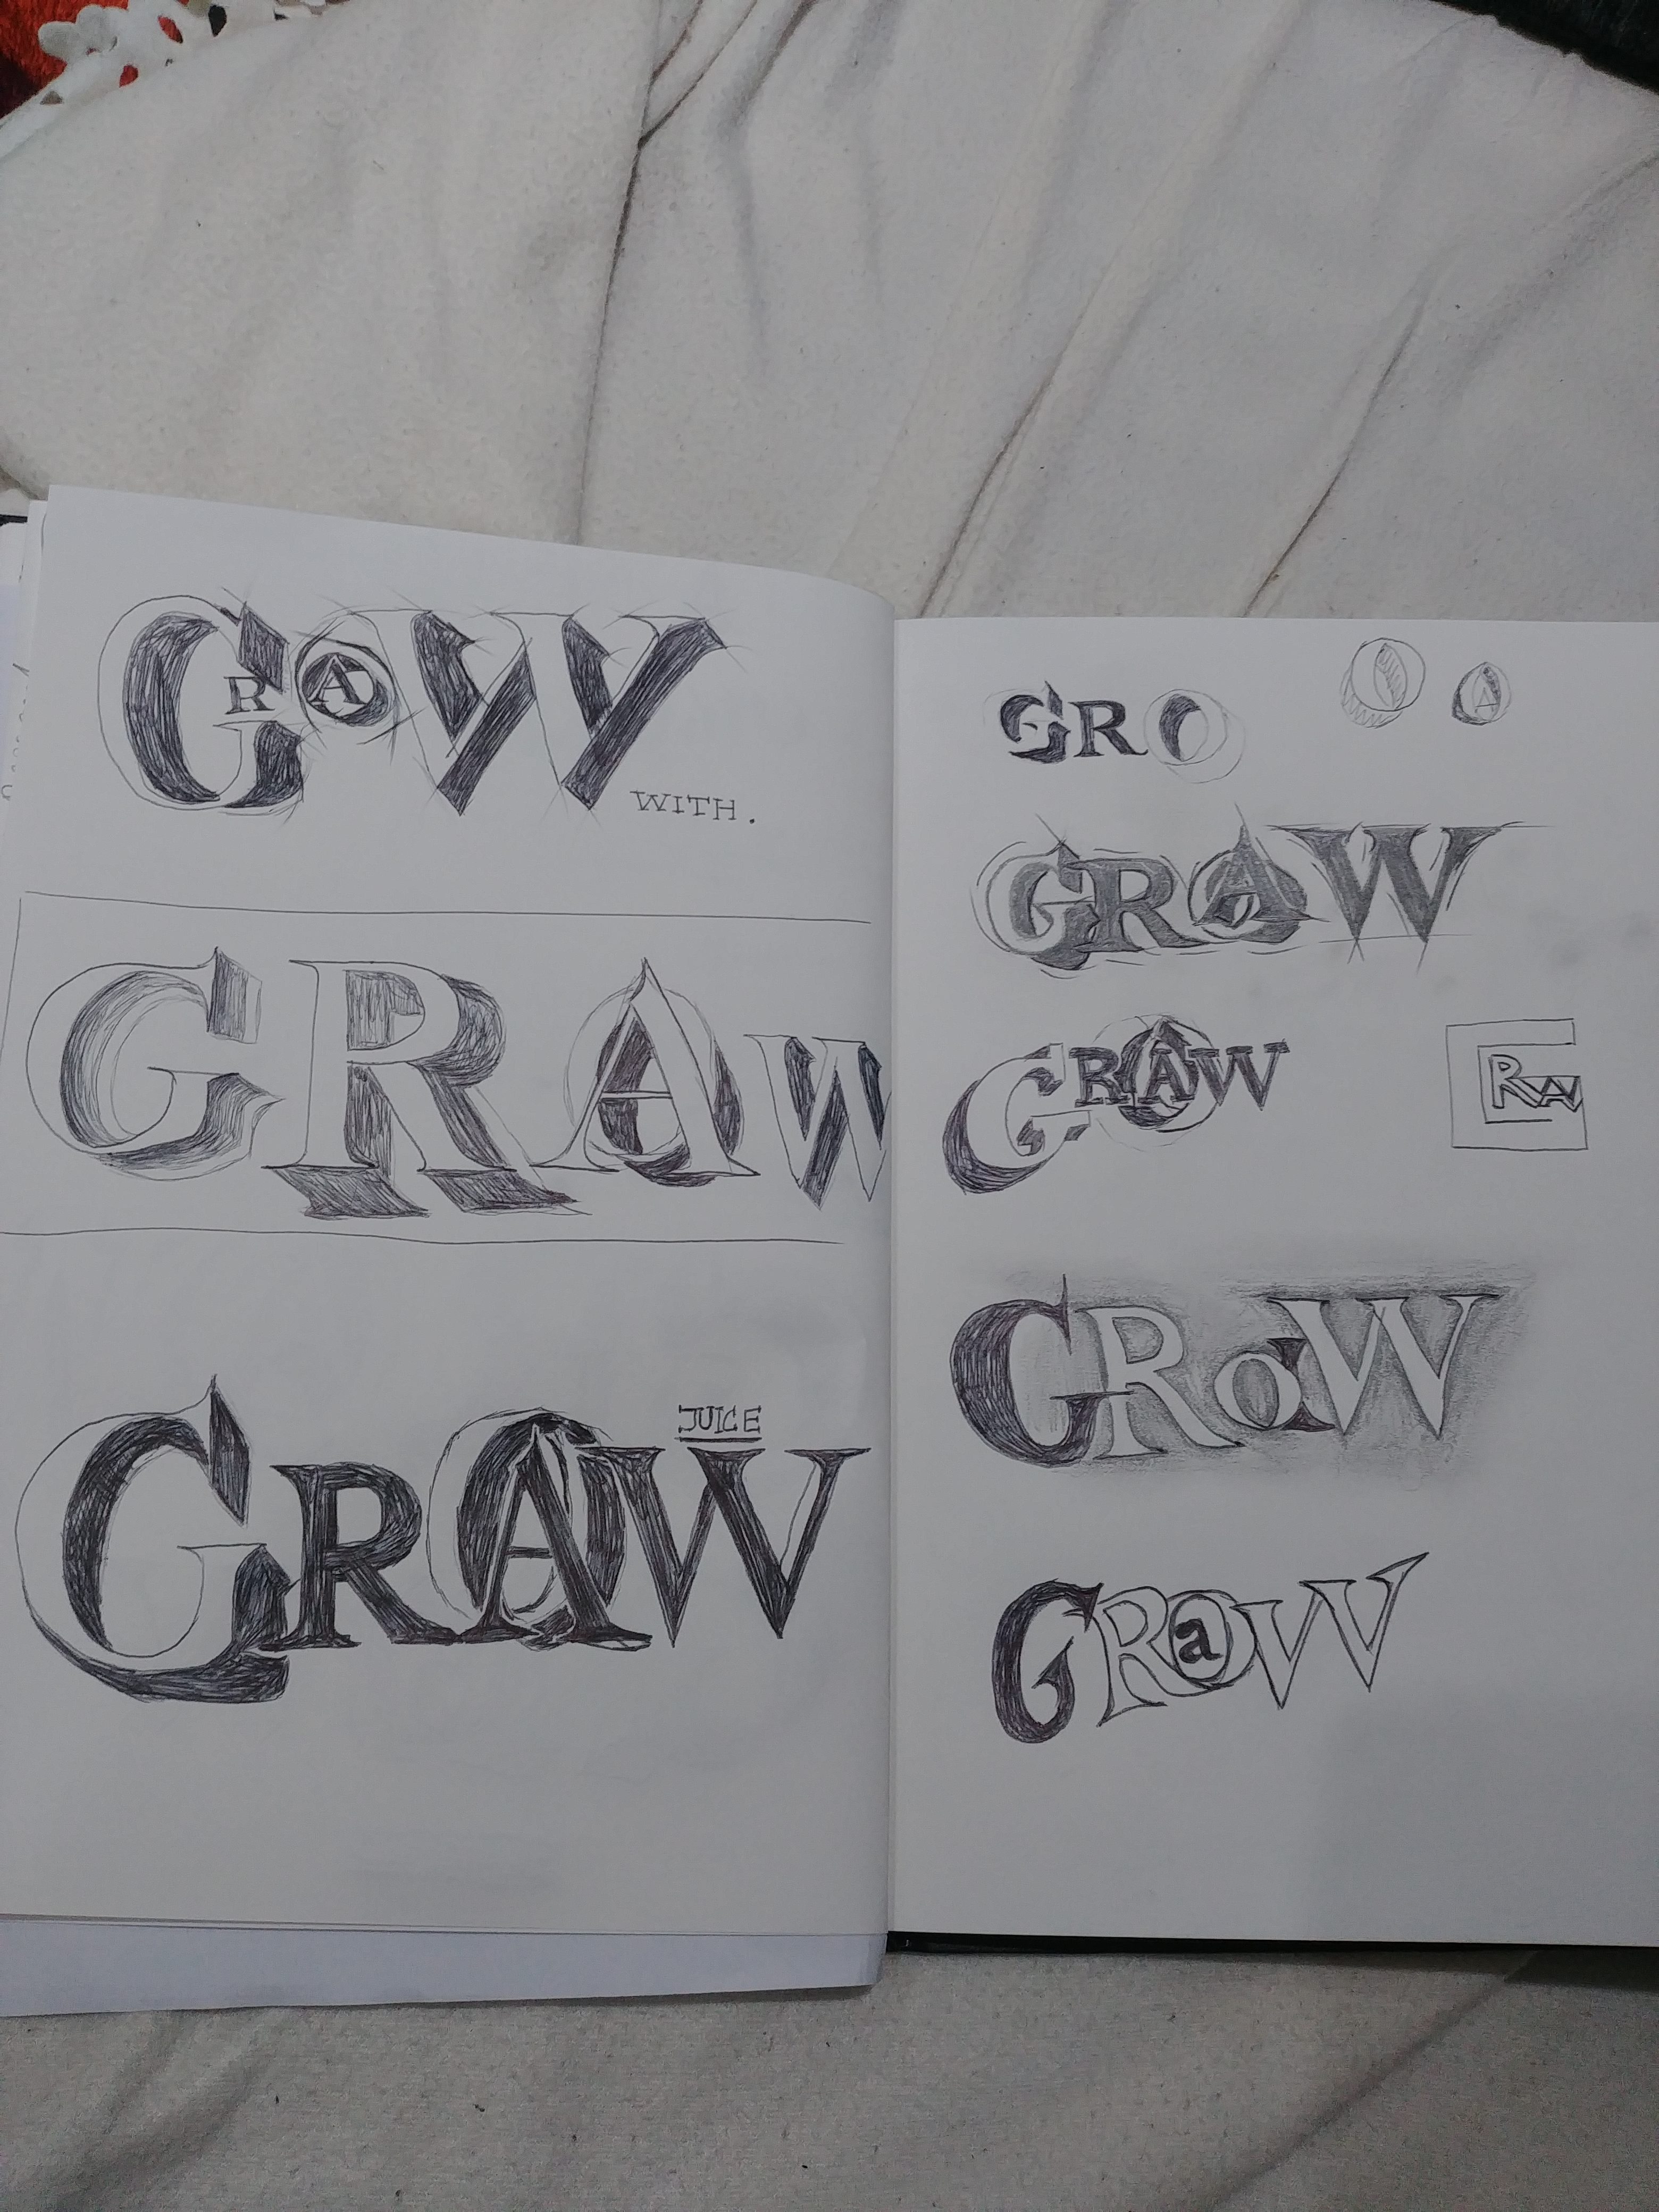 GRAW
WITH.
GRAW
JUICE
GRAW
GRO
A
GRAW
GRAW
GRW
GRoW
GRaW